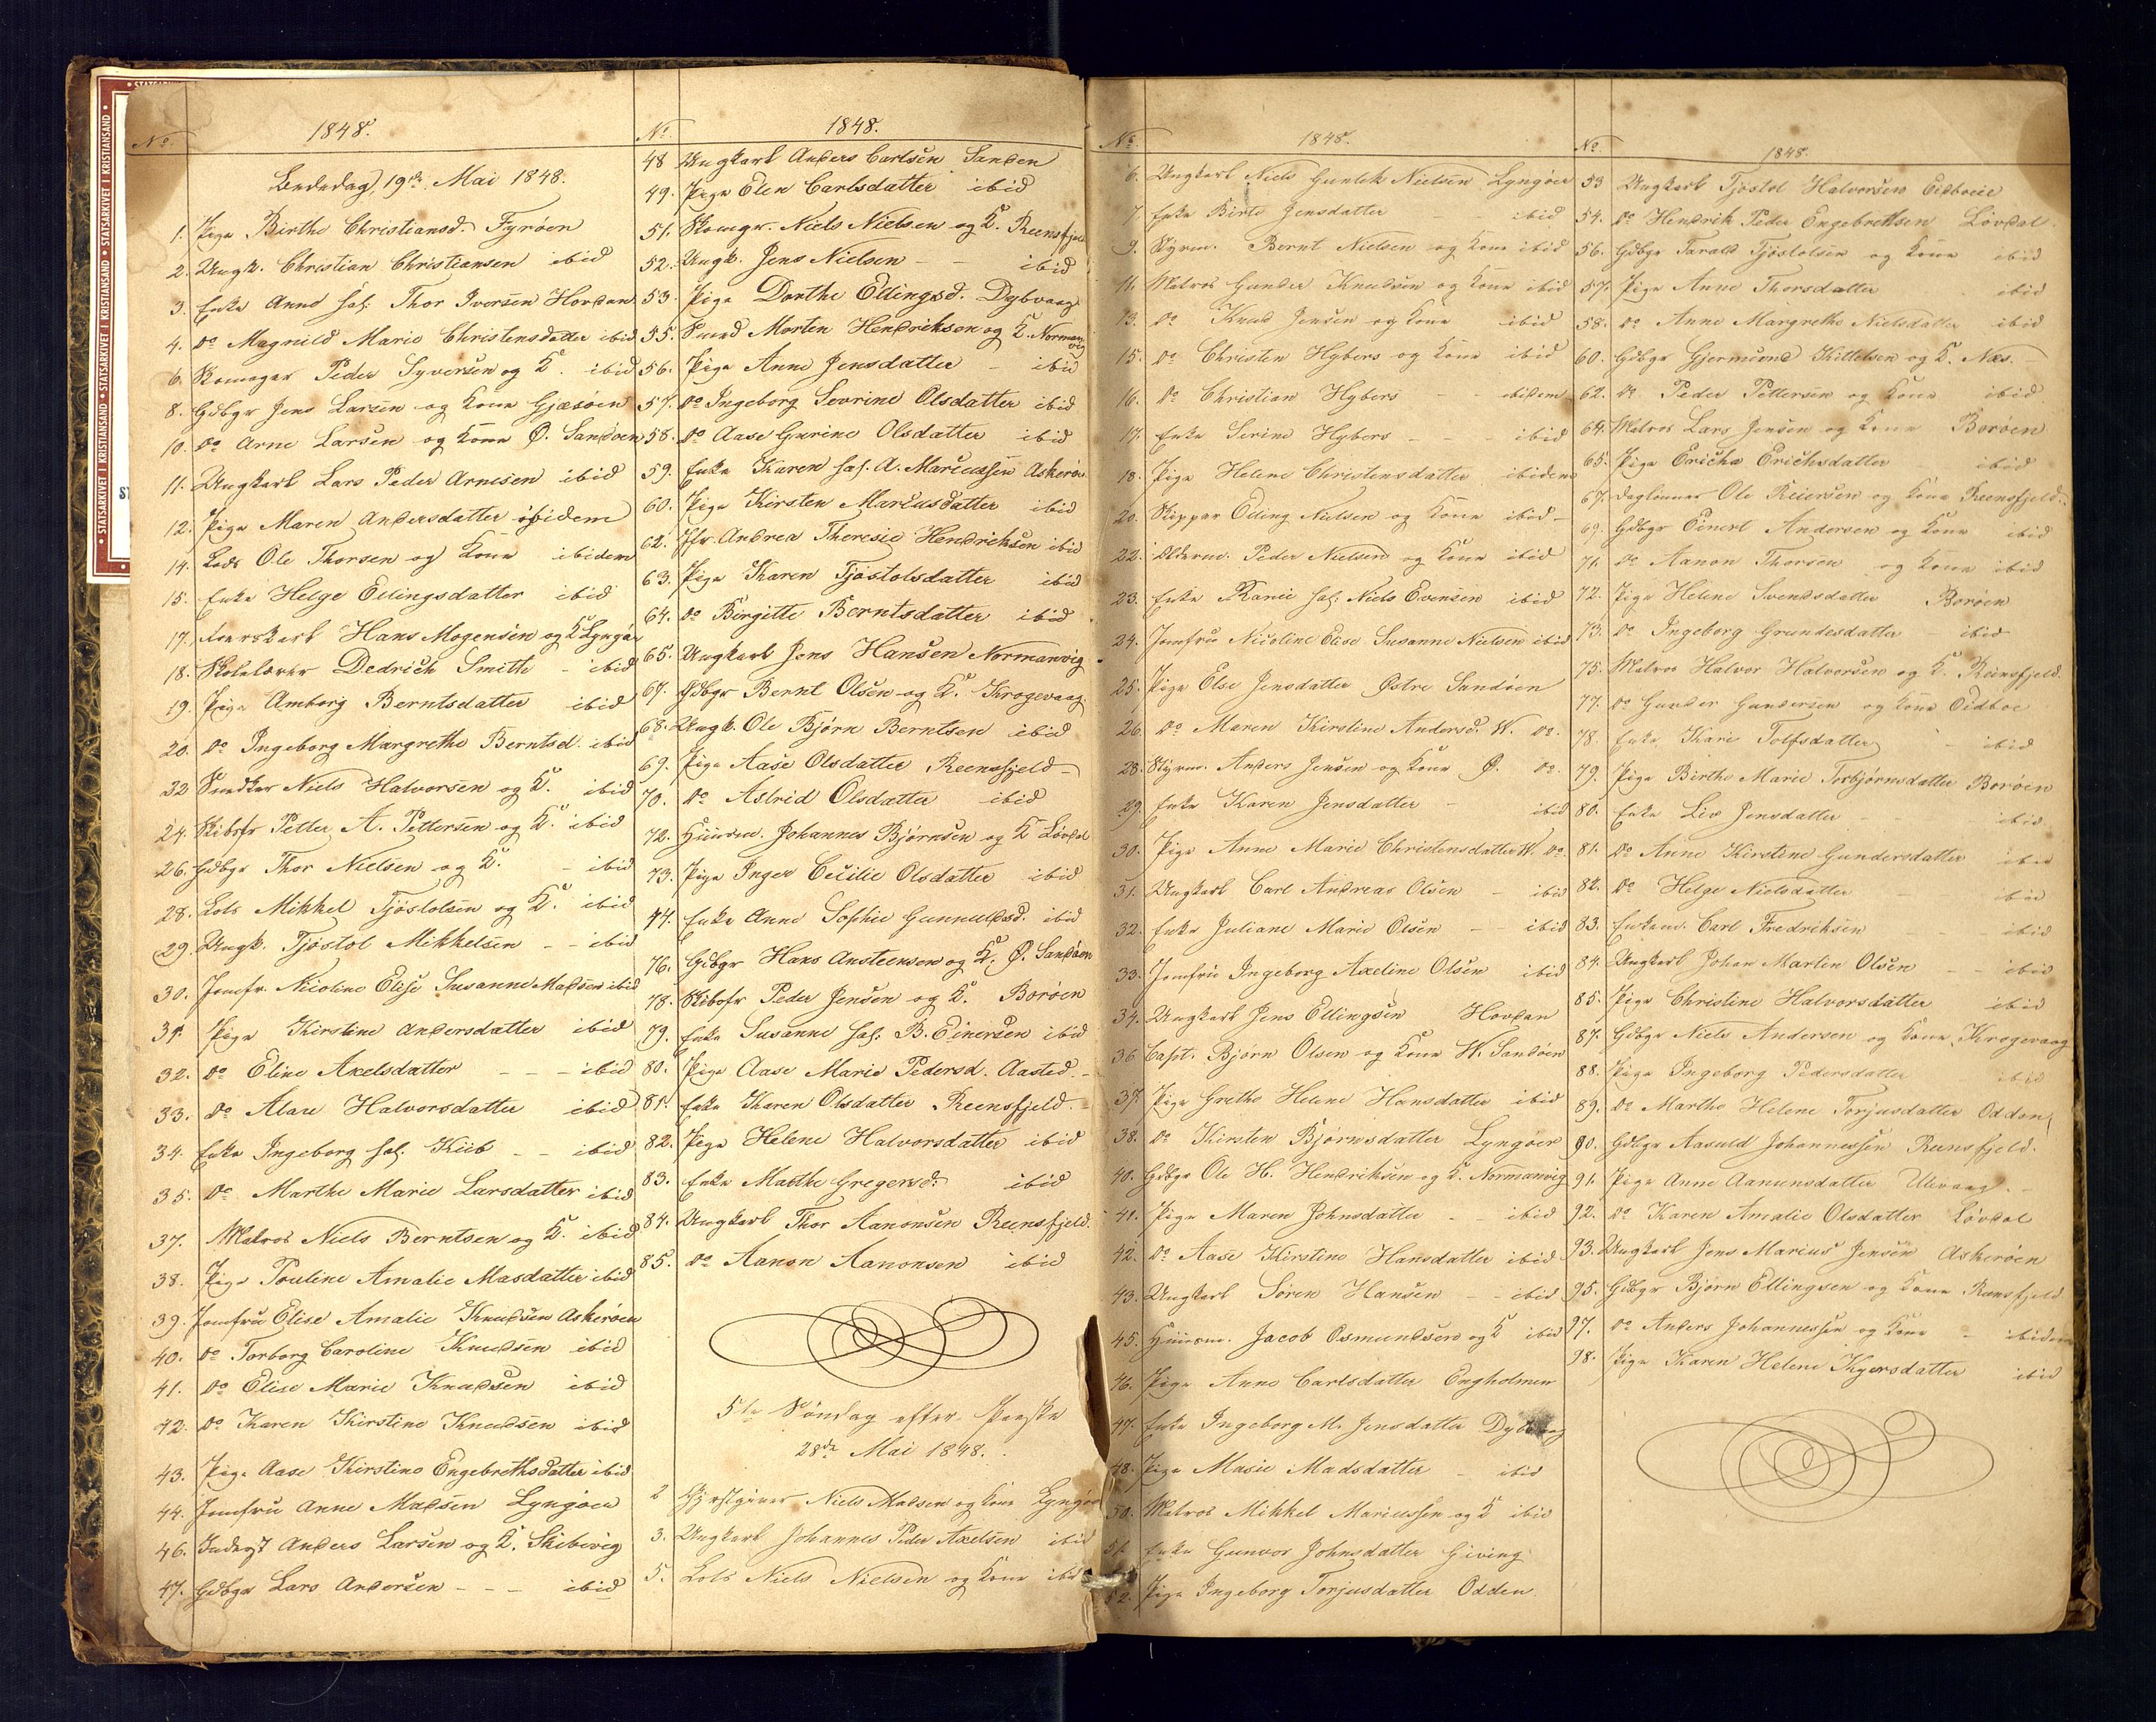 • STATSARKIVET I KRISTIANSAND • STATSARKIVET I KRISTIANSAND • STATSARKIVET I KRISTIANSAND •
No. 1848.
Bededag, 19de Mai 1848.
1. Pige Birthe Christiansd. Fyrøen
2. Ungk. Christian Christiansen ibid
3. Enke Anne sal. Thor Iversen Hovdan
4. do Magnild Marie Christensdatter ibid
6. Skomager Peder Syversen og K. ibid
8. Gdbgr Jens Larsen og Kone Gjæsøen
10. do Arne Larsen og Kone Ø. Sandøen
11. Ungkarl Lars Peder Arnesen ibid
12. Pige Maren Andersdatter ibidem
14. Lods Ole Thorsen og Kone ibidem
15. Enke Helge Ellingsdatter ibid
17. Hans Mogensen og K Lyngør
18. Skolelærer Dedrich Smith - ibid
19. Pige Amborg Berntsdatter ibid
20. do Ingeborg Margrethe Berntsd. ibid
22 Snedker Niels Halvorsen og K. ibid
24. Skibsfr Petter A. Pettersen og K. ibid
26. Gdbgr Thor Nielsen og K. - ibid
28. Lots Mikkel Tjøstolsen og K. ibid
29. Ungk. Tjøstol Mikkelsen - - ibid
30. Jomfr. Nicoline Elise Susanne Madsen ibid
31. Pige Kirstine Andersdatter ibid
32. do Eline Axelsdatter - - - ibid
33. do Alau Halvorsdatter ibid
34. Enke Ingeborg sal. Kiib - - ibid
35. do Marthe Marie Larsdatter ibid
37. Matros Niels Berntsen og K. ibid
38. Pige Pouline Amalie Masdatter ibid
39. Jomfru Elise Amalie Knudsen Askerøen
40. do Torborg Caroline Knudsen ibid
41. do Elise Marie Knudsen ibid
42. do Karen Kirstine Knudsen ibid
43. Pige Aase Kirstine Engebrethsdatter ibid
44. Jomfru Anne Madsen Lyngøer
46. Inderst Anders Larsen og K. Skibvig
47. Gdbgr Lars Andersen - - - ibid
No. 1848.
48 Ungkarl Anders Carlsen Sanden
49. Pige Elen Carlsdatter ibid
51. Skomgr. Niels Nielsen og K. Reensfjeld
52. Ungk. Jens Nielsen - - ibid
53. Pige Dorthe Ellingsd. Dybvaag
55. Smed Morten Henriksen og K. Normanvig
56. Pige Anne Jensdatter - ibid
57. do Ingeborg Severine Olsdatter ibid
58. do Aase Gurine Olsdatter ibid
59. Enke Karen sal. A. Mariussen Askerøe
60. Pige Kirsten Mariusdatter ibid
62. Jfr. Andrea Theresie Hendriksen ibid
63. Pige Karen Tjøstolsdatter ibid
64. do Birgitte Berntsdatter ibid
65. Ungkarl Jens Hansen Normanvig
67. Gdbgr Bernt Olsen og K. Krogevaag
68. Ungk. Ole Bjørn Berntsen ibid
69. Pige Aase Olsdatter Reensfjeld -
70. do Astrid Olsdatter ibid
72. Huusm. Johannes Bjørnsen og K Løvdal
73. Pige Inger Cecilie Olsdatter ibid
74. Enke Anne Sophie Gunnulvsd. ibid
76. Gdbgr Hans Ansteensen og K. Ø. Sandøen
78. Skibsfr Peder Jensen og K. Borøen
79. Enke Susanne sal. B. Einersen ibid
80. Pige Aase Marie Pedersd. Aasted. -
81. Enke Karen Olsdatter Reensfjeld.
82. Pige Helene Halvorsdatter ibid
83. Enke Marthe Gregersd. ibid
84. Ungkarl Thor Aanonsen Reensfjeld.
85. do Aanon Aanonsen ibid
5te Søndag efter Paaske
28de Mai 1848.
2 Gjæstgiver Niels Madsen og Kone Lyngør
3. Ungkarl Johannes Peder Axelsen ibid
5. Lots Niels Nielsen og Kone ibid
No. 1848.
6. Ungkarl Niels Gunlek Nielsen Lyngøer
7. Enke Birte Jensdatter - - ibid
9. Styrm. Bernt Nielsen og Kone ibid
11. Matros Gunder Knudsen og Kone ibid
13. do Knud Jensen og Kone ibid
15. do Christen Hybers og Kone ibid
16. do Christian Hybers - - ibidem
17. Enke Serine Hybers - - - ibid
18. Pige Helene Christensdatter ibidem
20. Skipper Elling Nielsen og Kone ibid -
22. Olderm. Peder Nielsen og Kone ibid
23. Enke Karen sal. Niels Evensen ibid
24. Jomfru Nicoline Elise Susanne Nielsen ibid
25. Pige Else Jensdatter Østre Sandøen
26. do Maren Kirstine Andersd. W. do.
28. Styrm. Anders Jensen og Kone Ø. do.
29. Enke Karen Jensdatter - ibid
30. Pige Anne Marie Christensdatter W. do.
31. Ungkarl Carl Andreas Olsen - ibid
32. Enke Juliane Marie Olsen - - ibid
33. Jomfru Ingeborg Axeline Olsen ibid
34. Ungkarl Jens Ellingsen Hovdan
36. Capt. Bjørn Olsen og Kone W. Sandøen
37. Pige Grethe Helene Hansdatter ibid
38. do Kirsten Bjørnsdatter Lyngøer
40. Gdbgr Ole H. Hendriksen og K. Normanvig
41. Pige Maren Johnsdatter - - ibid
42. do Aase Kirstine Hansdatter ibid
43. Ungkarl Søren Hansen - - ibid
45. Huusm. Jacob Osmundsen og K ibid
46. Pige Anne Carlsdatter Engholmen
47. Enke Ingeborg M. Jensdatter Dybvaag
48. Pige Masie Madsdatter - ibid
50. Matros Mikkel Mariussen og K ibid
51. Enke Gunvor Johnsdatter Giving
52. Pige Ingeborg Torjusdatter Odden.
No. 1848.
53 Ungkarl Tjøstol Halvorsen Eidboe
54. do Hendrik Peder Engebrethsen Løvdal
56. Gdbgr Tarald Tjøstolsen og Kone ibid
57. Pige Anne Thorsdatter ibid
58. do Anne Margrethe Nielsdatter ibid
60. Gdbgr Gjermund Kittelsen og K. Næs. -
62. do Peder Pettersen og Kone ibid
64. Matros Lars Jensen og Kone Borøen
65. Pige Ericha Erichsdatter ibid
67. Daglønner Ole Reiersen og Kone Reensfjeld.
69. Gdbgr Einert Andersen og Kone ibid
71. do Aanon Thorsen og Kone ibid
72. Pige Helene Svendsdatter Borøen
73. do Ingeborg Grundesdatter ibid
75. Matros Halvor Halvorsen og K. Reensfjeld.
77. do Gunder Gundersen og Kone Eidboe
78. Enke Kari Tolfsdatter - ibid
79. Pige Birthe Marie Torbjørnsdatter Borøen
80. Enke Liv Jensdatter - - ibid
81. do Anne Kirstine Gundersdatter ibid
82. do Helge Nielsdatter ibid
83. Enkem. Carl Fredriksen - - - ibid
84. Ungkarl Johan Martin Olsen - - ibid
85. Pige Christine Halvorsdatter ibid
87. Gdbgr Niels Andersen og Kone Krogevaag
88. Pige Ingeborg Pedersdatter ibid
89. do Marthe Helene Torjusdatter Odden
90. Gdbgr Aasuld Johannessen Reensfjeld.
91. Pige Anne Aanunsdatter Ulevaag. -
92. do Karen Amalie Olsdatter Løvdal
93. Ungkarl Jens Marius Jensen Askerøen
95. Gdbgr Bjørn Ellingsen og Kone Reensfjeld
97. do Anders Johannessen og Kone - ibidem
98. Pige Karen Helene Kgersdatter ibid